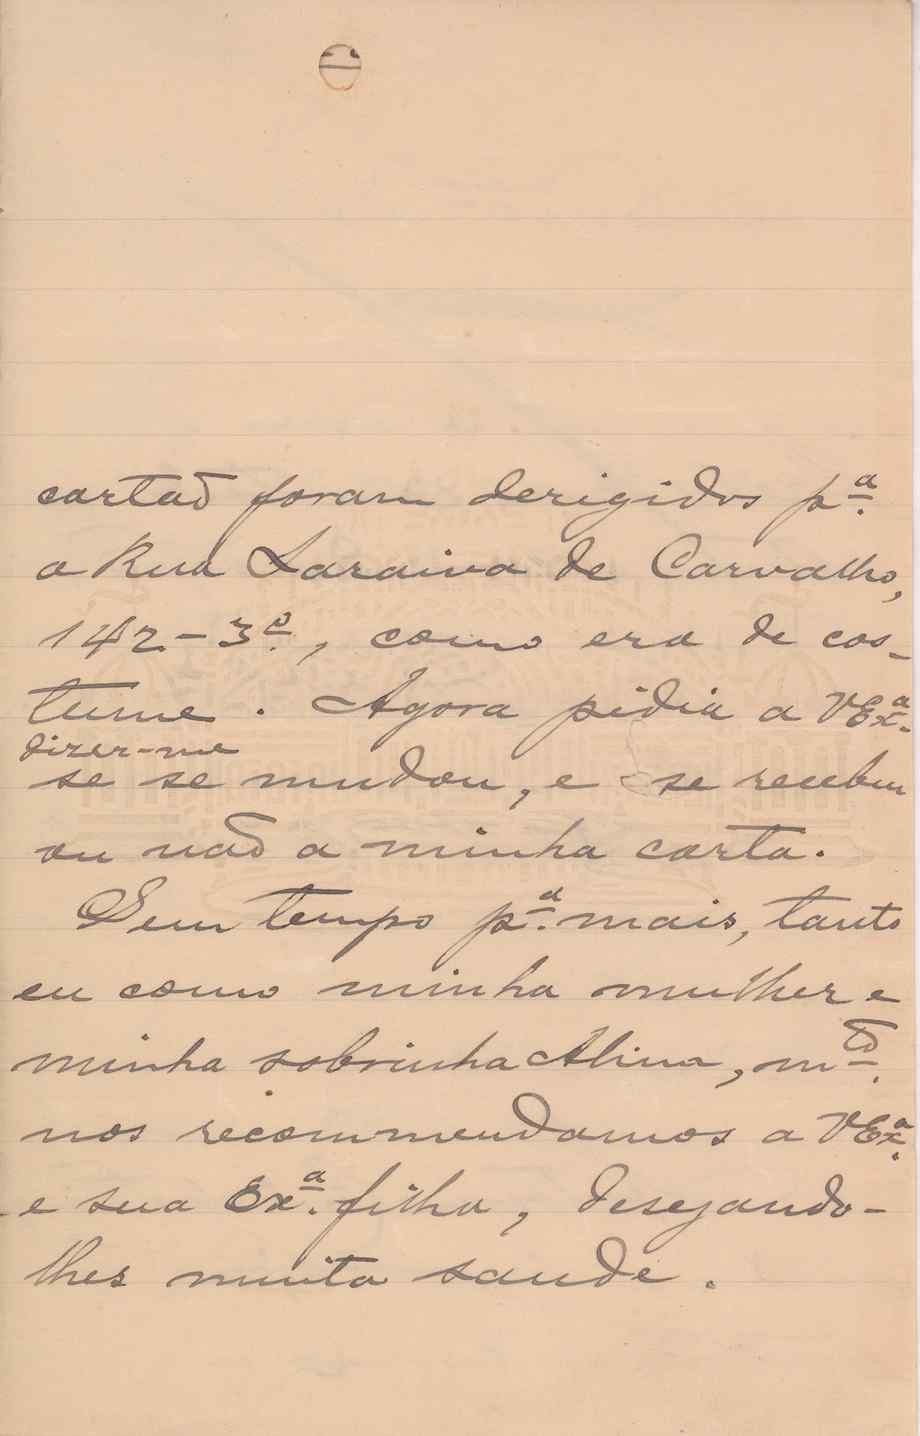 cartão foram derigidos p.ª
a Rua Saraiva de Carvalho,
142-3º., como era de cos-
tume. Agora pidia a VEx.ª
dizer-me
se se mudou, e se recebeu
ou não a minha carta.
Sem tempo p.ª mais, tanto
eu como minha mulher e
minha sobrinha Alina, m.to
nos recommendamos a VEx.ª
e sua Ex.ª filha, desejando-
lhes muita saude.